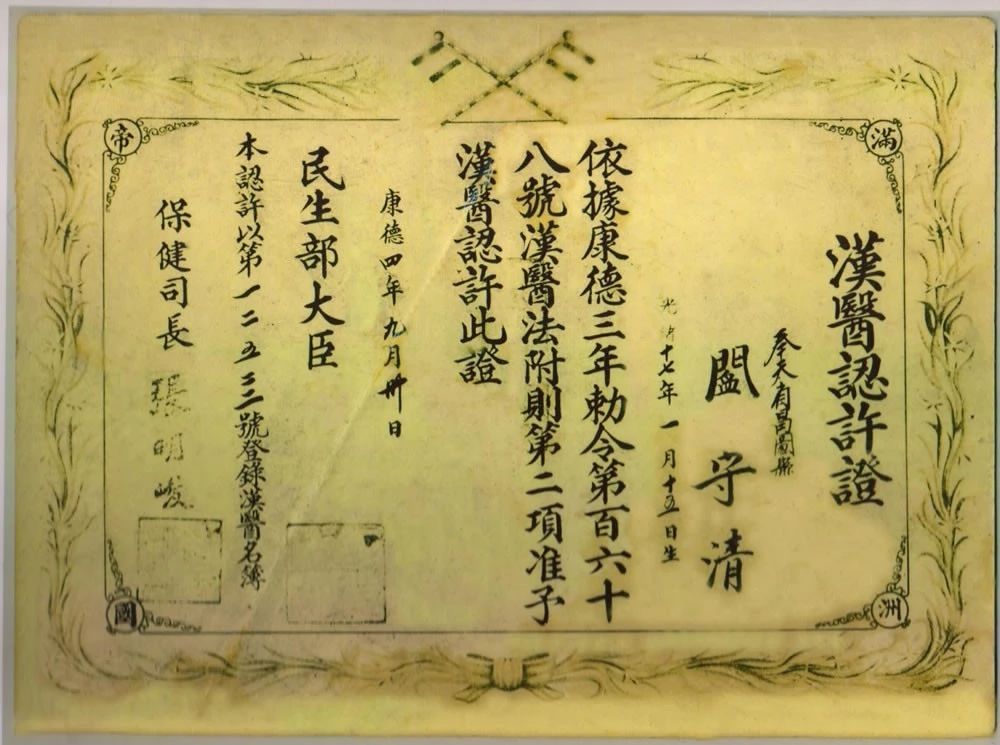 滿洲帝國
漢醫認許證
奉天省昌圖縣
闔守清
光緒十七年一月十五日生
依據康德三年勅令第百六十
八號漢醫法附則第二項准予
漢醫認許此證
康德四年九月卅日
民生部大臣
本認許以第一二五三三號登錄漢醫名簿
保健司長 張明峻